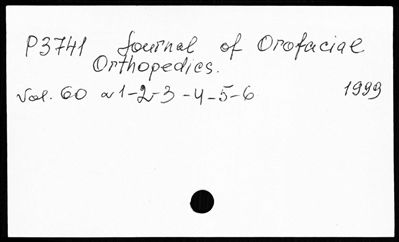 P3741 Journal of Orofacial
Orthopedics.
Vol. 60 N1-2-3-4-5-6 1999